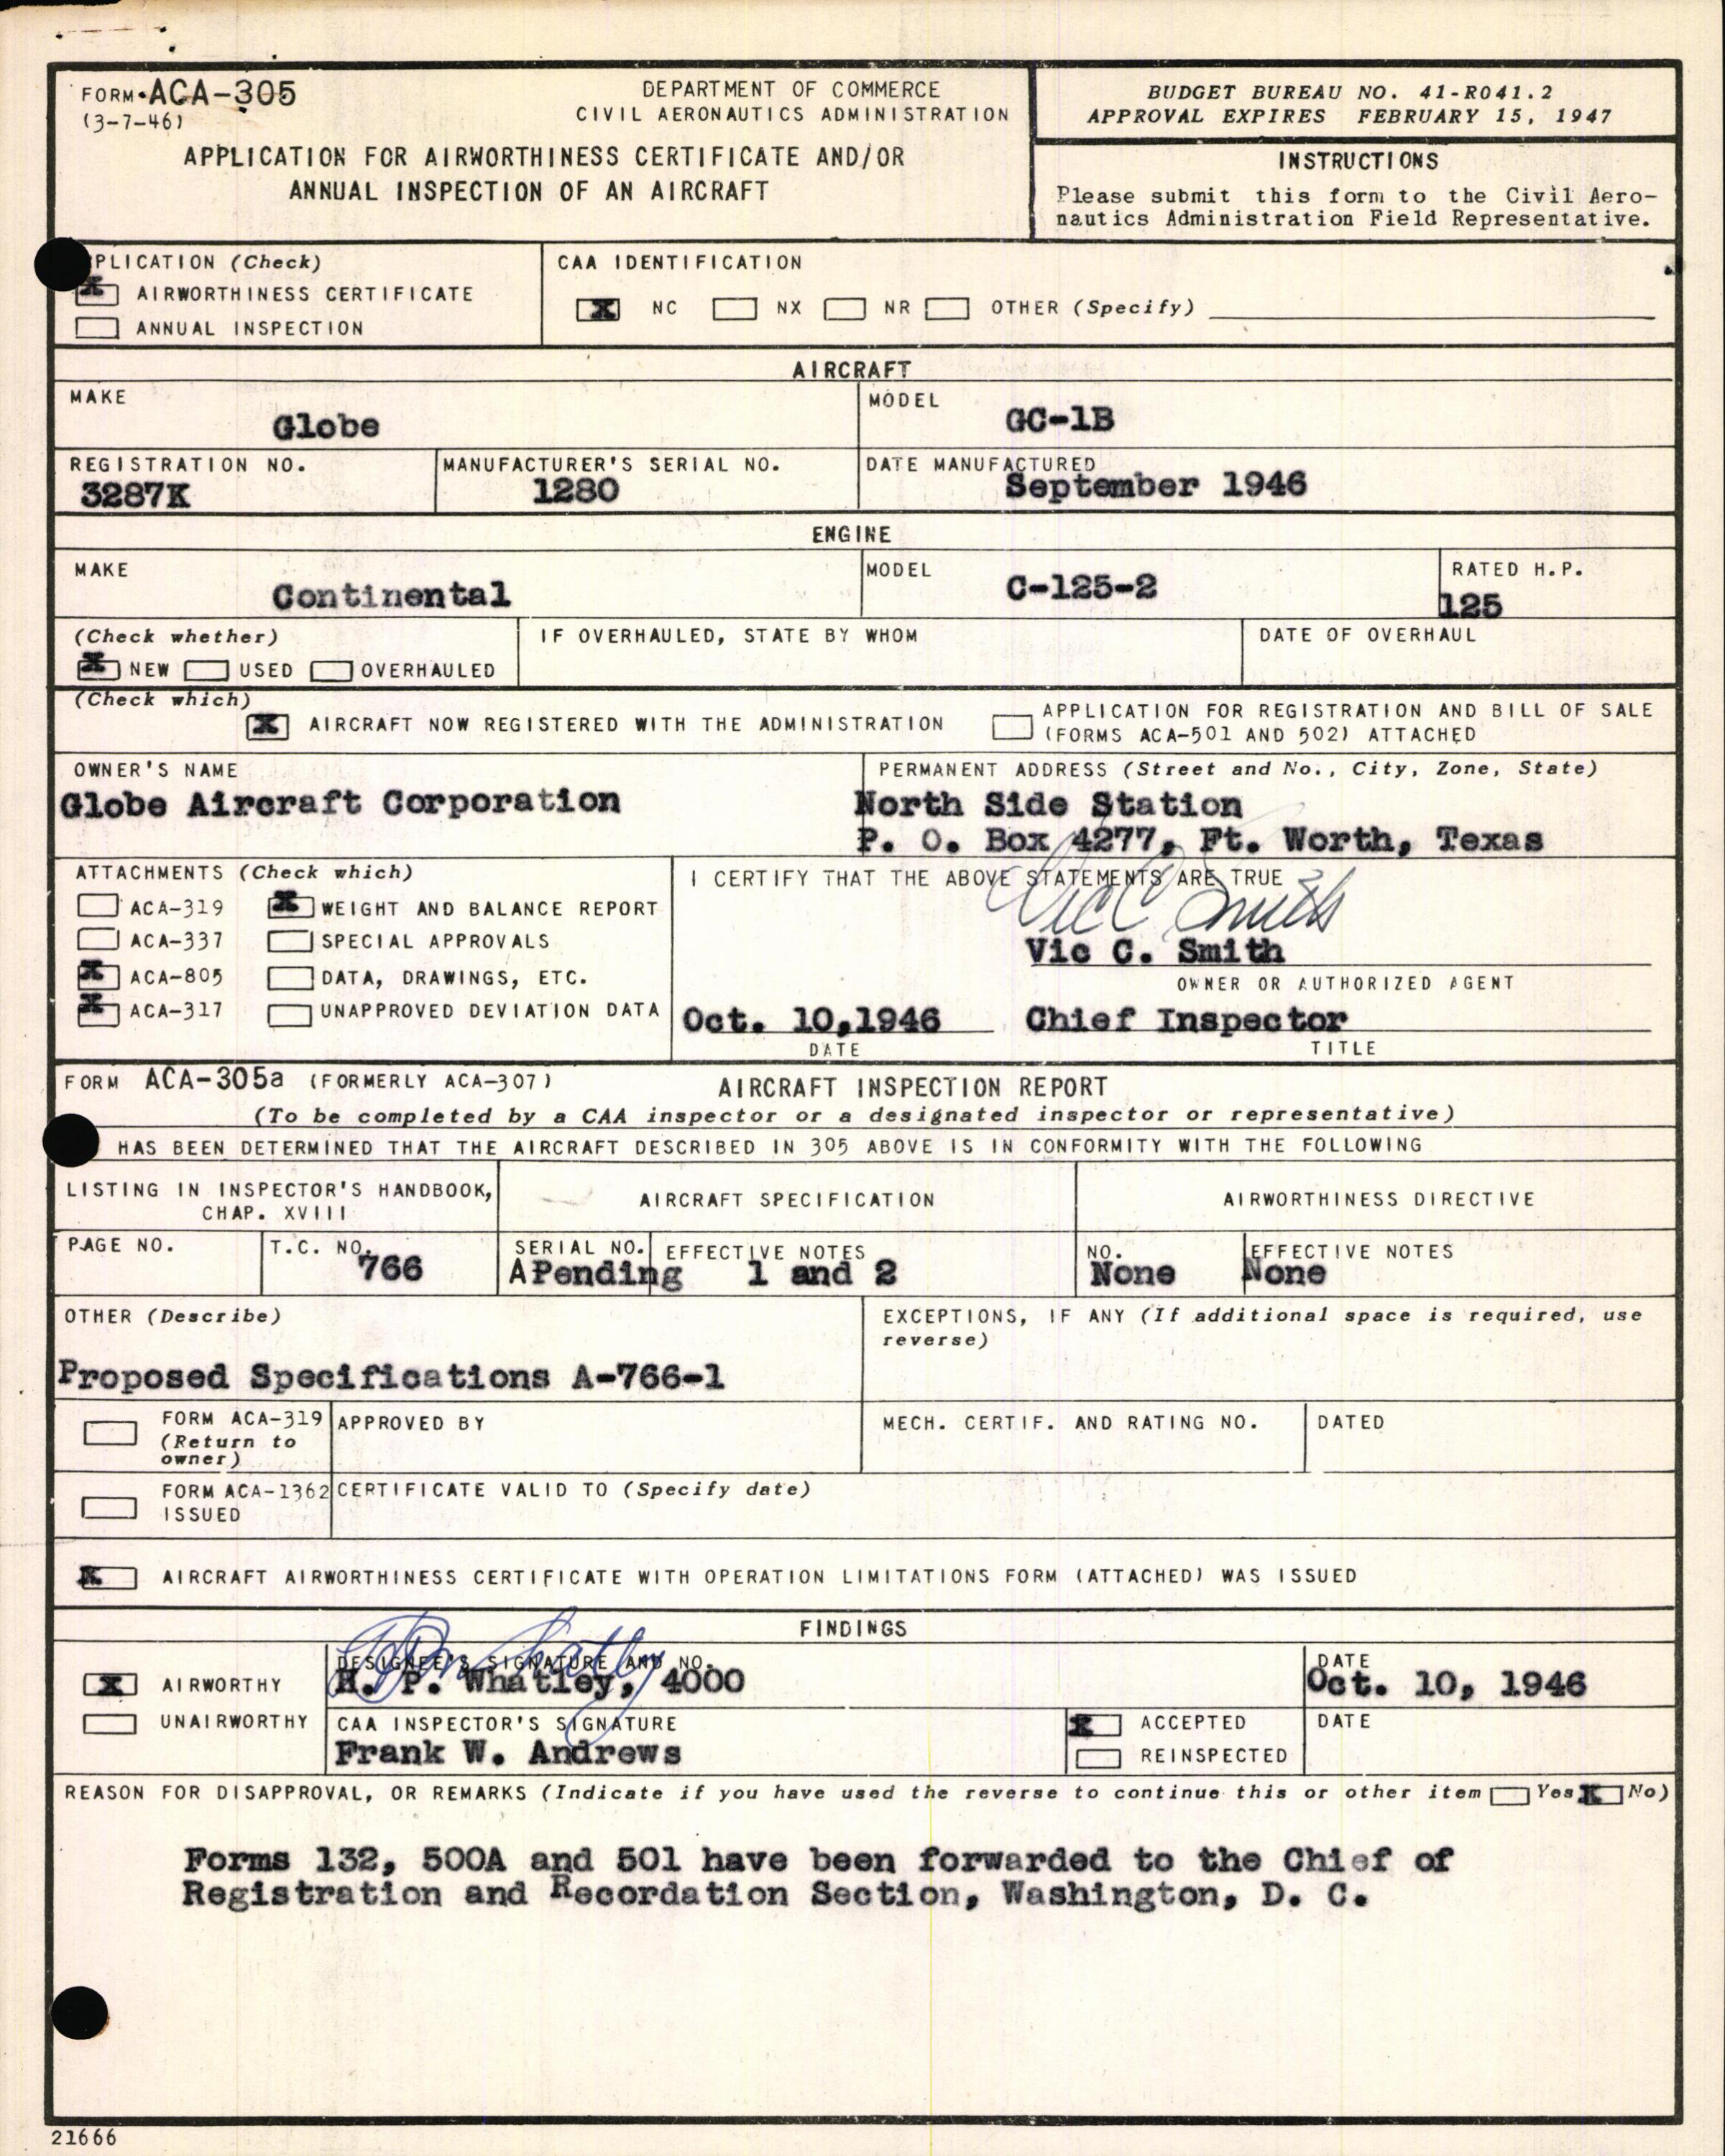 FORM ACA-305
(3-7-46)
DEPARTMENT OF COMMERCE
CIVIL AERONAUTICS ADMINISTRATION
APPLICATION FOR AIRWORTHINESS CERTIFICATE AND/OR
ANNUAL INSPECTION OF AN AIRCRAFT
BUDGET BUREAU NO. 41-R041.2
APPROVAL EXPIRES FEBRUARY 15, 1947
INSTRUCTIONS
Please submit this form to the Civil Aero-
nautics Administration Field Representative.
PLICATION (Check)
X AIRWORTHINESS CERTIFICATE
ANNUAL INSPECTION
CAA IDENTIFICATION
X NC NX NR OTHER (Specify)
AIRCRAFT
MAKE
Globe
MODEL
GC-1B
REGISTRATION NO.
3287K
MANUFACTURER'S SERIAL NO.
1280
DATE MANUFACTURED
September 1946
ENGINE
MAKE
Continental
MODEL
C-125-2
RATED H.P.
125
(Check whether)
X NEW USED OVERHAULED
IF OVERHAULED, STATE BY WHOM
DATE OF OVERHAUL
(Check which)
X AIRCRAFT NOW REGISTERED WITH THE ADMINISTRATION
APPLICATION FOR REGISTRATION AND BILL OF SALE
(FORMS ACA-501 AND 502) ATTACHED
OWNER'S NAME
Globe Aircraft Corporation
PERMANENT ADDRESS (Street and No., City, Zone, State)
North Side Station
P. O. Box 4277, Ft. Worth, Texas
ATTACHMENTS (Check which)
ACA-319 X WEIGHT AND BALANCE REPORT
ACA-337 SPECIAL APPROVALS
X ACA-805 DATA, DRAWINGS, ETC.
X ACA-317 UNAPPROVED DEVIATION DATA
I CERTIFY THAT THE ABOVE STATEMENTS ARE TRUE
Vic C Smith
Vic C. Smith
OWNER OR AUTHORIZED AGENT
Oct. 10,1946 Chief Inspector
DATE TITLE
FORM ACA-305a (FORMERLY ACA-307) AIRCRAFT INSPECTION REPORT
(To be completed by a CAA inspector or a designated inspector or representative)
HAS BEEN DETERMINED THAT THE AIRCRAFT DESCRIBED IN 305 ABOVE IS IN CONFORMITY WITH THE FOLLOWING
LISTING IN INSPECTOR'S HANDBOOK,
CHAP. XVIII
AIRCRAFT SPECIFICATION
AIRWORTHINESS DIRECTIVE
PAGE NO.
T.C. NO.
766
SERIAL NO.
APending
EFFECTIVE NOTES
1 and 2
NO.
None
EFFECTIVE NOTES
None
OTHER (Describe)
Proposed Specifications A-766-1
EXCEPTIONS, IF ANY (If additional space is required, use
reverse)
FORM ACA-319
(Return to
owner)
APPROVED BY
MECH. CERTIF. AND RATING NO.
DATED
FORM ACA-1362
ISSUED
CERTIFICATE VALID TO (Specify date)
X AIRCRAFT AIRWORTHINESS CERTIFICATE WITH OPERATION LIMITATIONS FORM (ATTACHED) WAS ISSUED
FINDINGS
X AIRWORTHY
UNAIRWORTHY
DESIGNEE'S SIGNATURE AND NO.
H. P. Whatley, 4000
DATE
Oct. 10, 1946
CAA INSPECTOR'S SIGNATURE
Frank W. Andrews
X ACCEPTED
REINSPECTED
DATE
REASON FOR DISAPPROVAL, OR REMARKS (Indicate if you have used the reverse to continue this or other item Yes X No)
Forms 132, 500A and 501 have been forwarded to the Chief of
Registration and Recordation Section, Washington, D. C.
21666